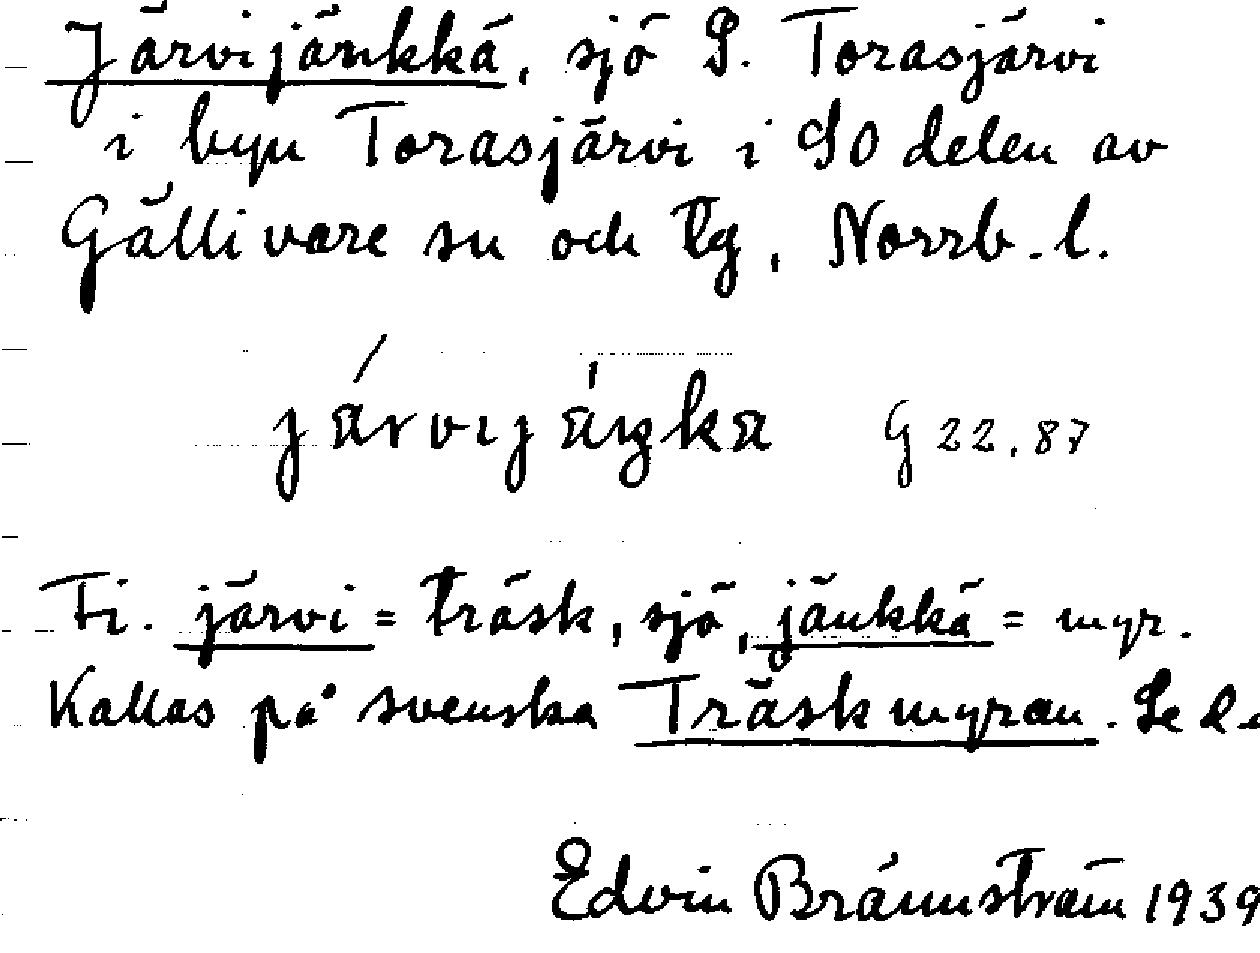 Järvijänkkä, sjö S. Torasjärvi
i byn Torasjärvi i SO delen av
Gällivare sn och tg, Norrb. l.
járvijáŋka G 22.87
Fi. järvi = träsk, sjö, jänkkä = myr.
Kallas på svenska Träskmyran. Se
Edvin Brännström 1939